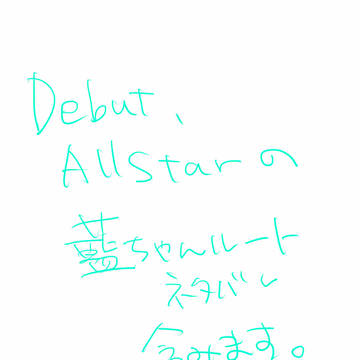 Debut、
AllStarの
藍ちゃんルート
ネタバレ
含みます。